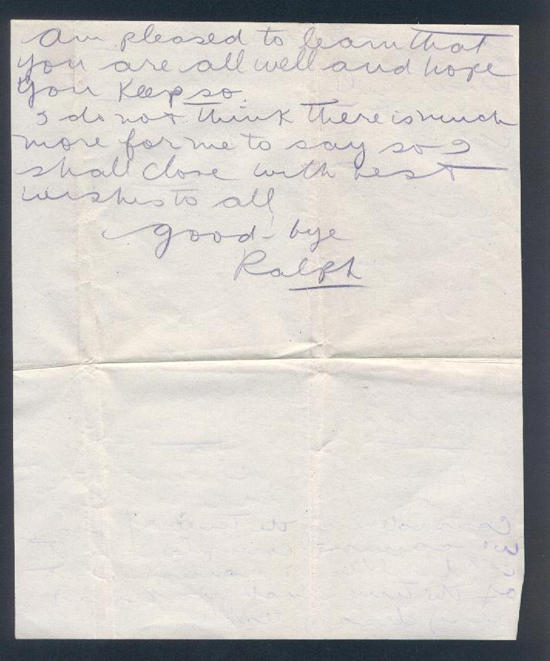 Am pleased to learn that
you are all well and hope
you keep so.
I do not think there is much
more for me to say so I
shall close with best
wishes to all
good-bye
Ralph